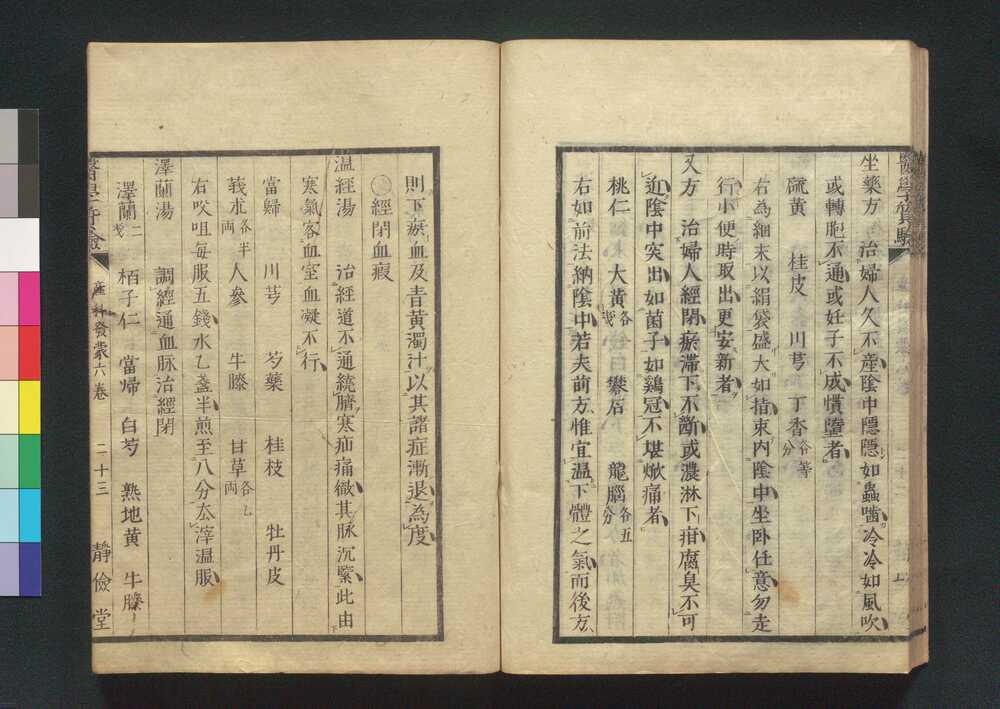 坐藥方 治婦人久不產陰中隱隱如蟲嚙冷冷如風吹
或轉胞不通或妊子不成慣墮者
硫黄 桂皮 川芎 丁香各等分
右為細末以絹袋盛大如指束內陰中坐卧任意勿走
行小便時取出更安新者
又方 治婦人經閉瘀滯下不斷或濃淋下疳腐臭不可
近陰中突出如菌子如鷄冠不堪焮痛者
桃仁 大黄各 礬石 龍腦各五分
右如前法納陰中若夫前方惟宜温下體之氣而後方
則下瘀血及青黄濁汁以其諸症漸退為度
經閉血瘕
温經湯 治經道不通繞臍寒疝痛徹其脉沉緊此由
寒氣客血室血凝不行
當歸 川芎 芍藥 桂枝 牡丹皮
莪朮各半両 人參 牛膝 甘草各乙両
右㕮咀每服五錢水乙盞半煎至八分去滓温服
澤蘭湯 調經通血脉治經閉
澤蘭二戔 栢子仁 當歸 白芍 熟地黄 牛膝
產科發蒙六卷 二十三 靜儉堂